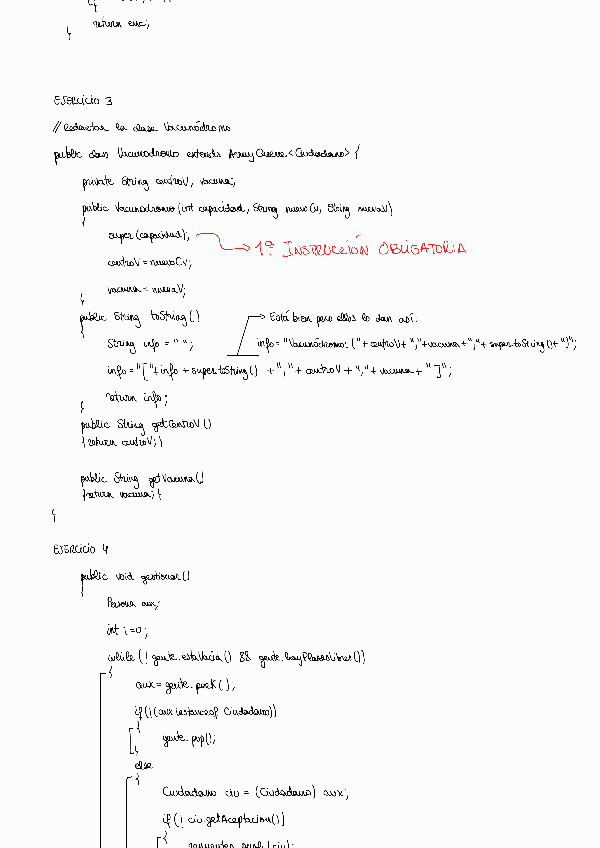 return aux;
}
EJERCICIO 3
// Redactar la clase Vacunódromo
public class Vacunodromo extends ArrayQueue<Ciudadano> {
private String centroV, vacuna;
public Vacunodromo (int capacidad, String nuevoCv, String nuevaV)
{
super (capacidad); → 1ª INSTRUCCIÓN OBLIGATORIA
centroV = nuevoCv;
vacuna = nuevaV;
}
public String toString () → Está bien pero ellos lo dan así:
{
String info = " "; info = "Vacunódromo: (" + centroV + "," + vacuna + "," + super.toString() + ")";
info = "[" + info + super.toString() + "," + centroV + "," + vacuna + "]";
return info;
}
public String getCentroV ()
{return centroV;}
public String getVacuna()
{return vacuna;}
}
EJERCICIO 4
public void gestionar ()
{
Persona aux;
int i = 0;
while (! gente.estaVacia () && gente.hayPlazasLibres())
{
aux = gente.peek ();
if (! (aux instanceof Ciudadano))
{
gente.pop();
}
else
{
Ciudadano ciu = (Ciudadano) aux;
if (! ciu.getAceptacion())
{